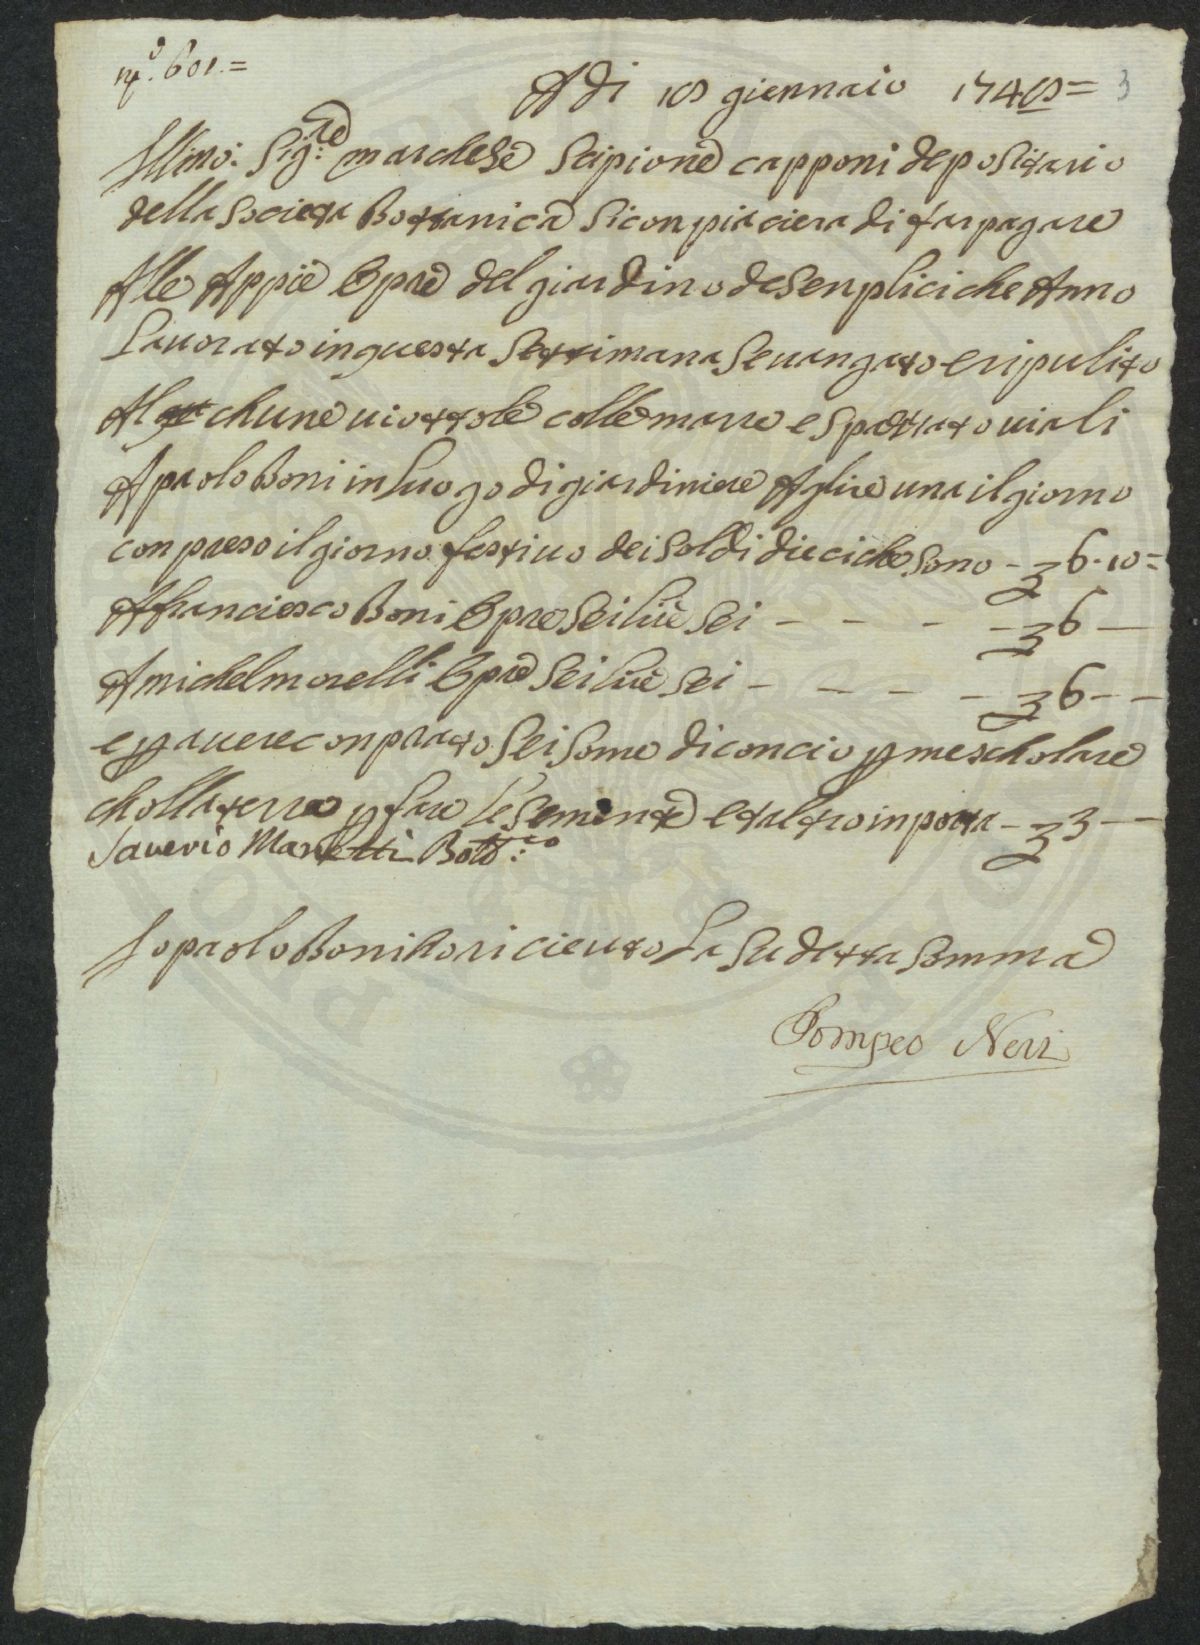 N.o 601.=
A di 18 giennaio 1748= 3
Illmo: Sig:re marchese Scipione capponi depositario
della Societa Bottanica Si conpiaciera di far pagare
Alle Appie Opre del giardino de Senplici che Anno
Lauorato in questa Settimana Se uangato e ripulito
Al chune uiottole colle marre e spatrato uiali
A paolo Boni in Luogo di giardiniere A lire una il giorno
con preso il giorno festiuo dei Soldi dieci che Sono - 6.10=
A franciesco Boni Opre Sei lire Sei - - - - 6 —
A michel morelli Opre Sei lire Sei - - - - 6 - -
e p auere conprato Sei Some di concio p mescholare
cholla terra p fare le Semente e taltro inporta - 3 —
Saverio Manetti Bott:co
Io paolo Boni ho riceuto La Sudetta Somma
Pompeo Neri